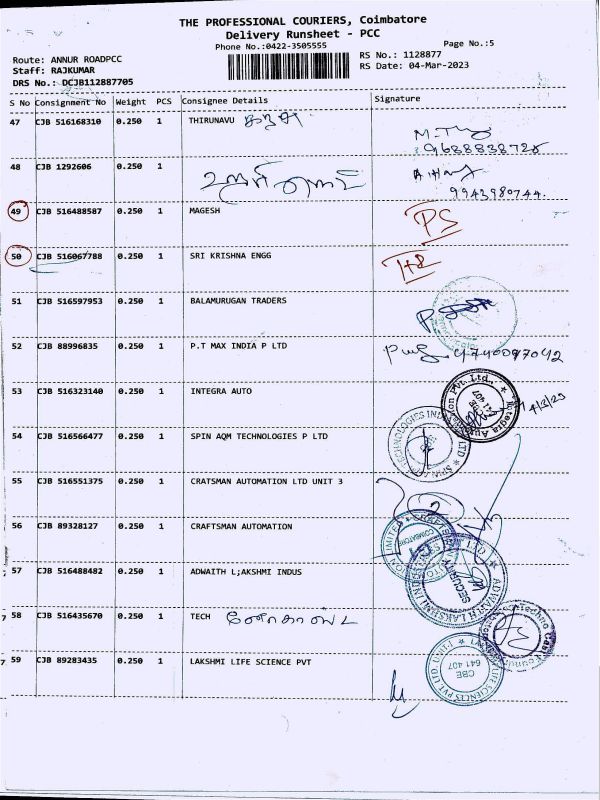 THE PROFESSIONAL COURIERS, Coimbatore
Delivery Runsheet - PCC
Phone No.:0422-3505555
Page No.:5
Route: ANNUR ROADPCC
RS No.: 1128877
Staff: RAJKUMAR
RS Date: 04-Mar-2023
DRS No.: DCJB112887705
S No Consignment No Weight PCS Consignee Details Signature
47 CJB 516168310 0.250 1 THIRUNAVU
48 CJB 1292606 0.250 1
9943980744.
49 CJB 516488587 0.250 1 MAGESH PS
50 CJB 516067788 0.250 1 SRI KRISHNA ENGG
51 CJB 516597953 0.250 1 BALAMURUGAN TRADERS
52 CJB 88996835 0.250 1 P.T MAX INDIA P LTD
53 CJB 516323140 0.250 1 INTEGRA AUTO
54 CJB 516566477 0.250 1 SPIN AQM TECHNOLOGIES P LTD
55 CJB 516551375 0.250 1 CRATSMAN AUTOMATION LTD UNIT 3
56 CJB 89328127 0.250 1 CRAFTSMAN AUTOMATION
57 CJB 516488482 0.250 1 ADWAITH L;AKSHMI INDUS
SECURITY
58 CJB 516435670 0.250 1 TECH
59 CJB 89283435 0.250 1 LAKSHMI LIFE SCIENCE PVT
CBE
641 407